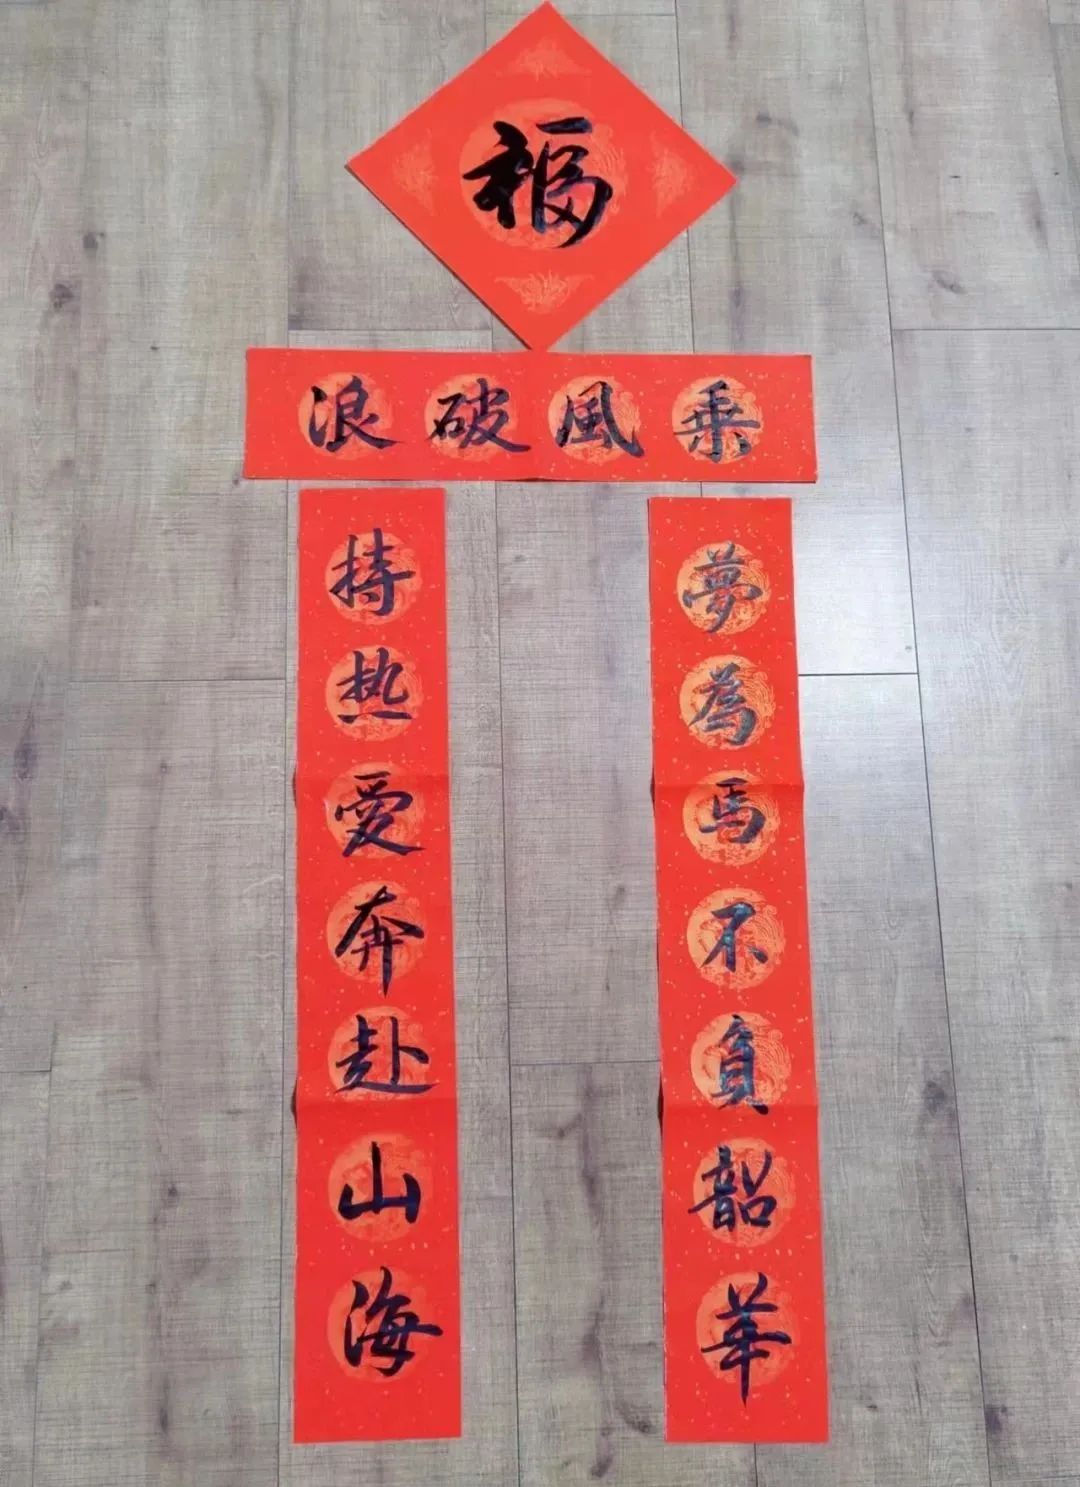 福
乘風破浪
夢為馬不負韶華
持热愛奔赴山海